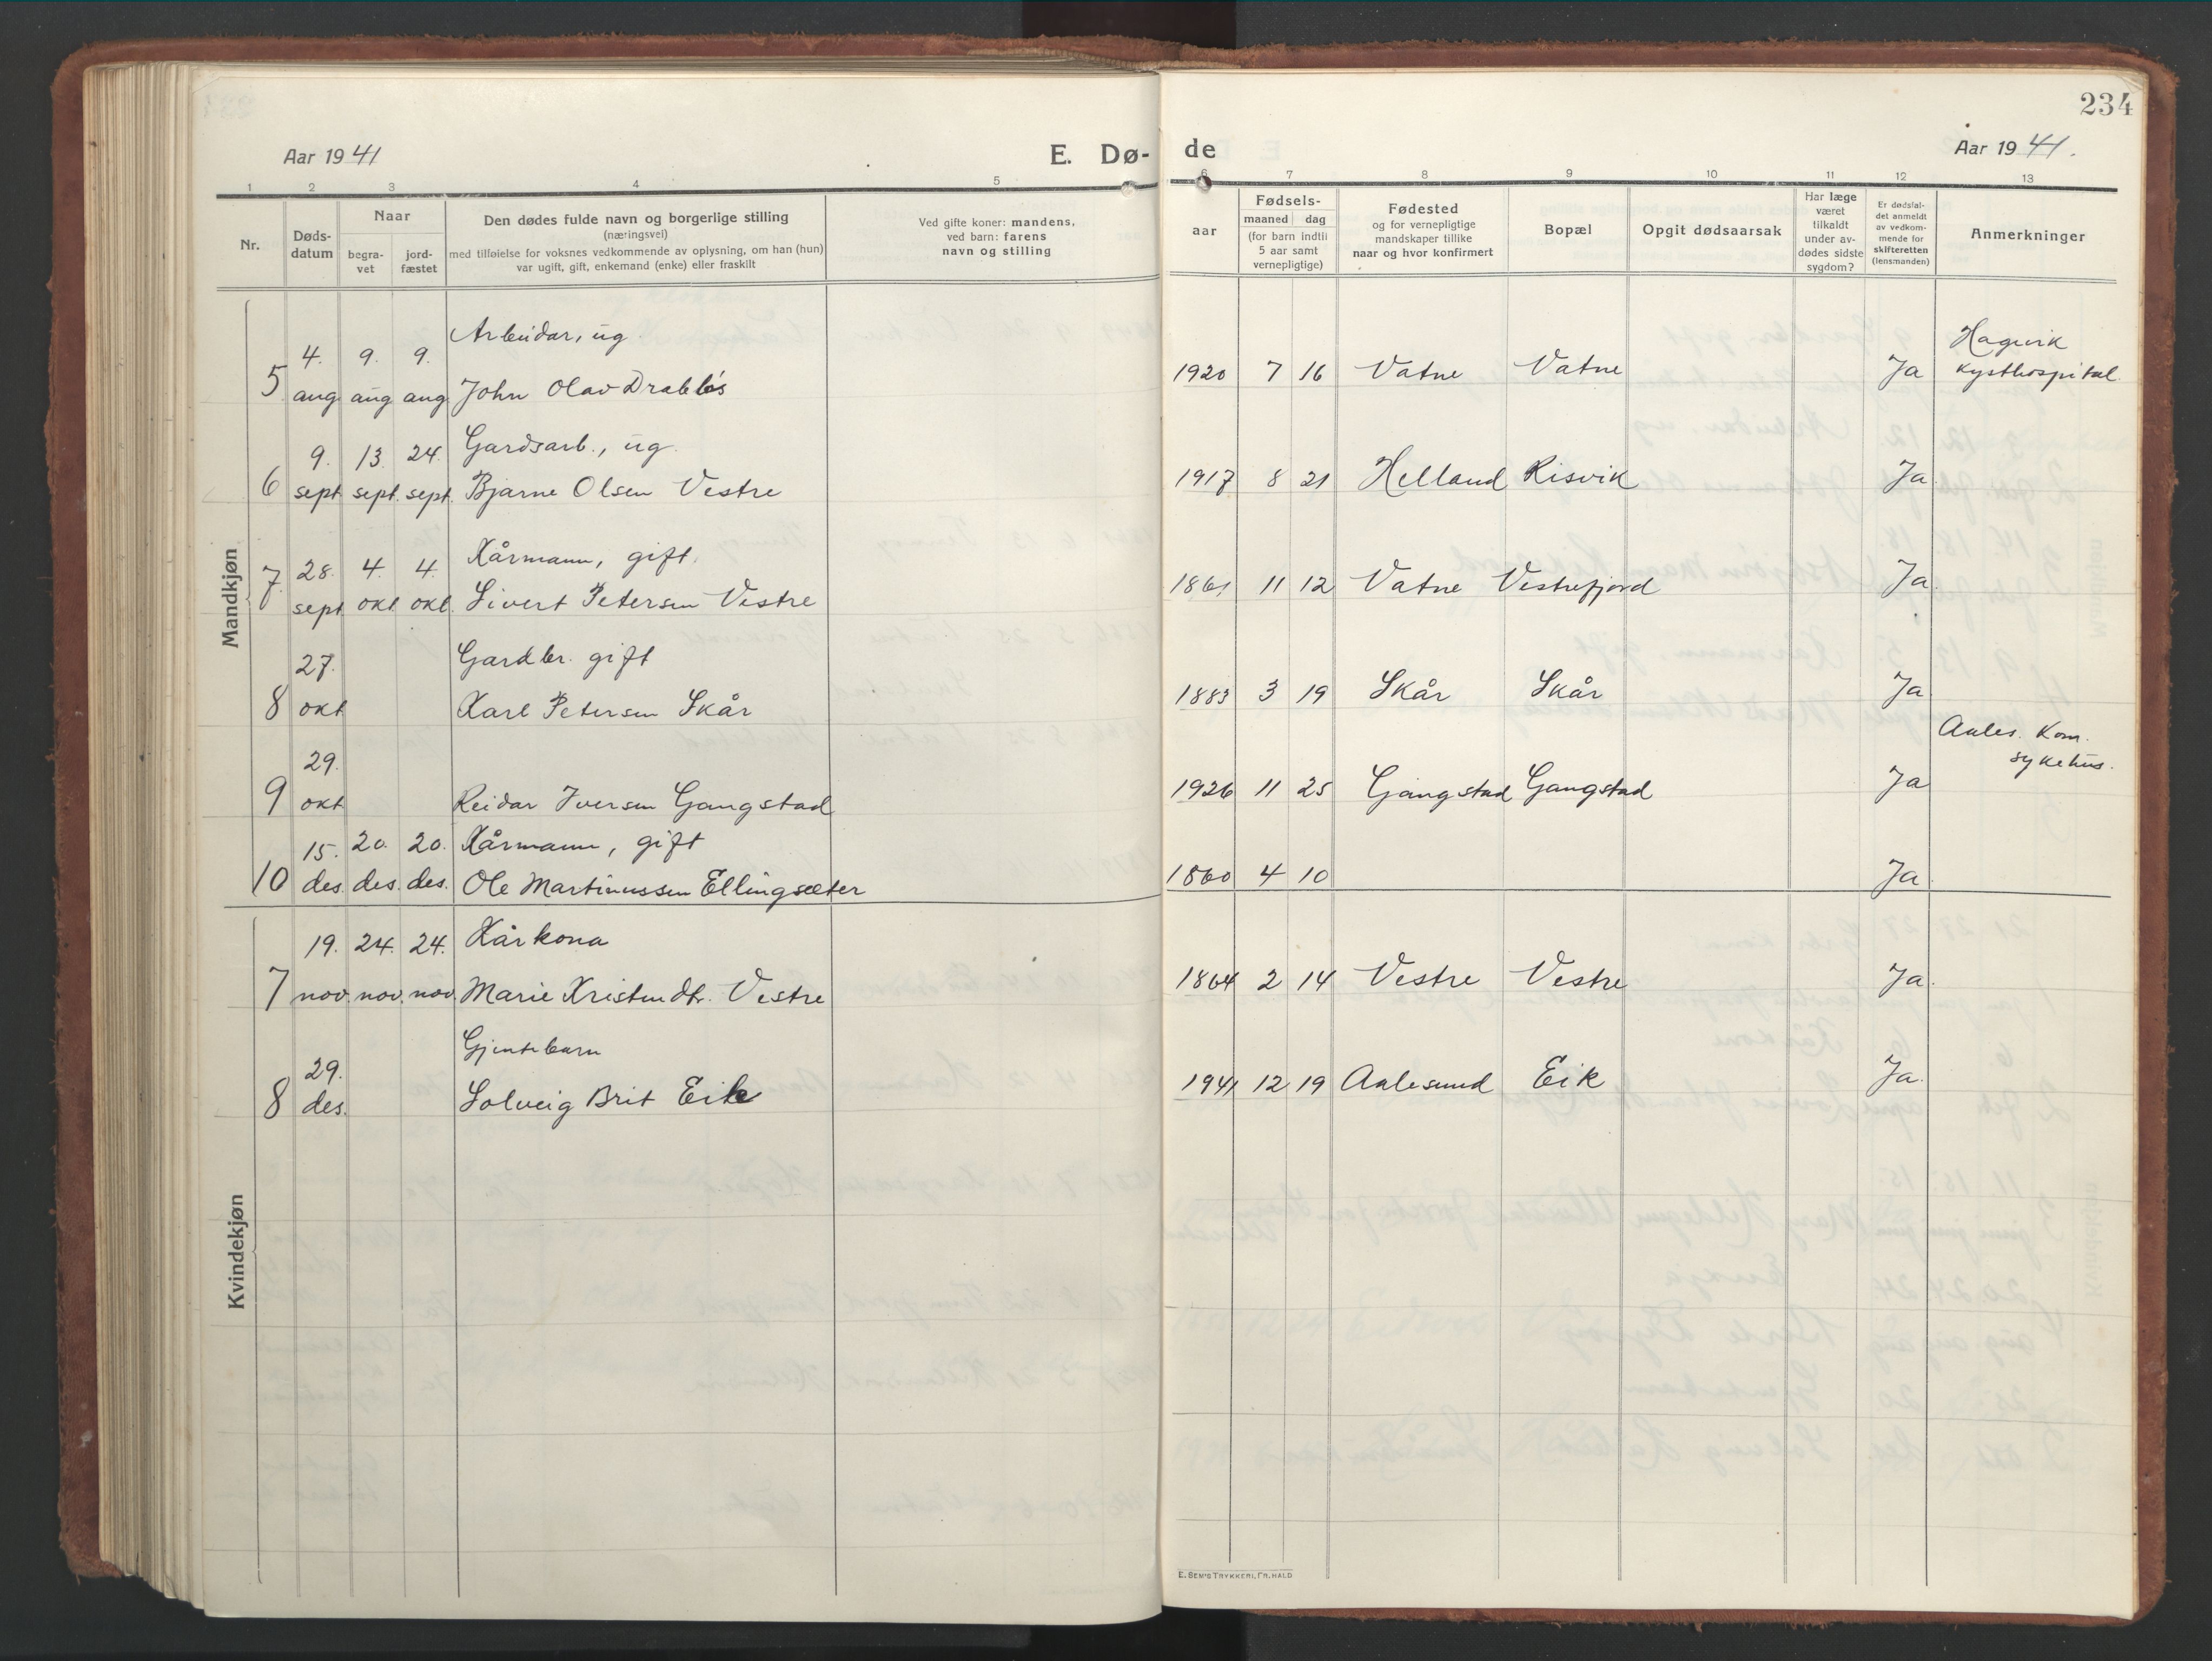 234
Aar 1941
E. Dø-
de
Aar 1941.
1 2 3 4 5 6 7 8 9 10 11 12 13
Nr.
Døds-
datum
Naar
begra-
vet
jord-
fæstet
Den dødes fulde navn og borgerlige stilling
(næringsvei)
med tilføielse for voksnes vedkommende av oplysning, om han (hun)
var ugift, gift, enkemand (enke) eller fraskilt
Ved gifte koner: mandens,
ved barn: farens
navn og stilling
aar
Fødsels-
maaned dag
(for barn indtil
5 aar samt
vernepligtige)
Fødested
og for vernepligtige
mandskaper tillike
naar og hvor konfirmert
Bopæl
Opgit dødsaarsak
Har læge
været
tilkaldt
under av-
dødes sidste
sygdom?
Er dødsfal-
det anmeldt
av vedkom-
mende for
skifteretten
(lensmanden)
Anmerkninger
Mandkjøn
4. 9. 9. Arbeidar, ug.
5 aug aug aug John Olav Drabløs 1920 7 16 Vatne Vatne Ja
Hagevik
kysthospital.
9. 13. 24. Gardsarb., ug.
6 sept. sept. sept. Bjarne Olsen Vestre 1917 8 21 Helland Risvik Ja
28. 4. 4. Kårmann, gift.
7. sept. okt okt. Sivert Petersen Vestre 1861 11 12 Vatne Vestrefjord Ja
27. Gardbr. gift
8 okt Karl Petersen Skår 1883 3 19 Skår Skår Ja
29.
9 okt Reidar Iversen Gangstad 1926 11 25 Gangstad Gangstad Ja
Aales. Kom.
sykehus.
15. 20. 20. Kårmann, gift
10 des. des. des. Ole Martinussen Ellingsæter 1860 4 10 Ja
Kvindekjøn
19. 24. 24. Kårkona
7 nov. nov. nov. Marie Kristendtr. Vestre 1864 2 14 Vestre Vestre Ja.
29. Gjentebarn
8 des. Solveig Brit Eik 1941 12 19 Aalesund Eik Ja.
E. SEM'S TRYKKERI, FR.HALD